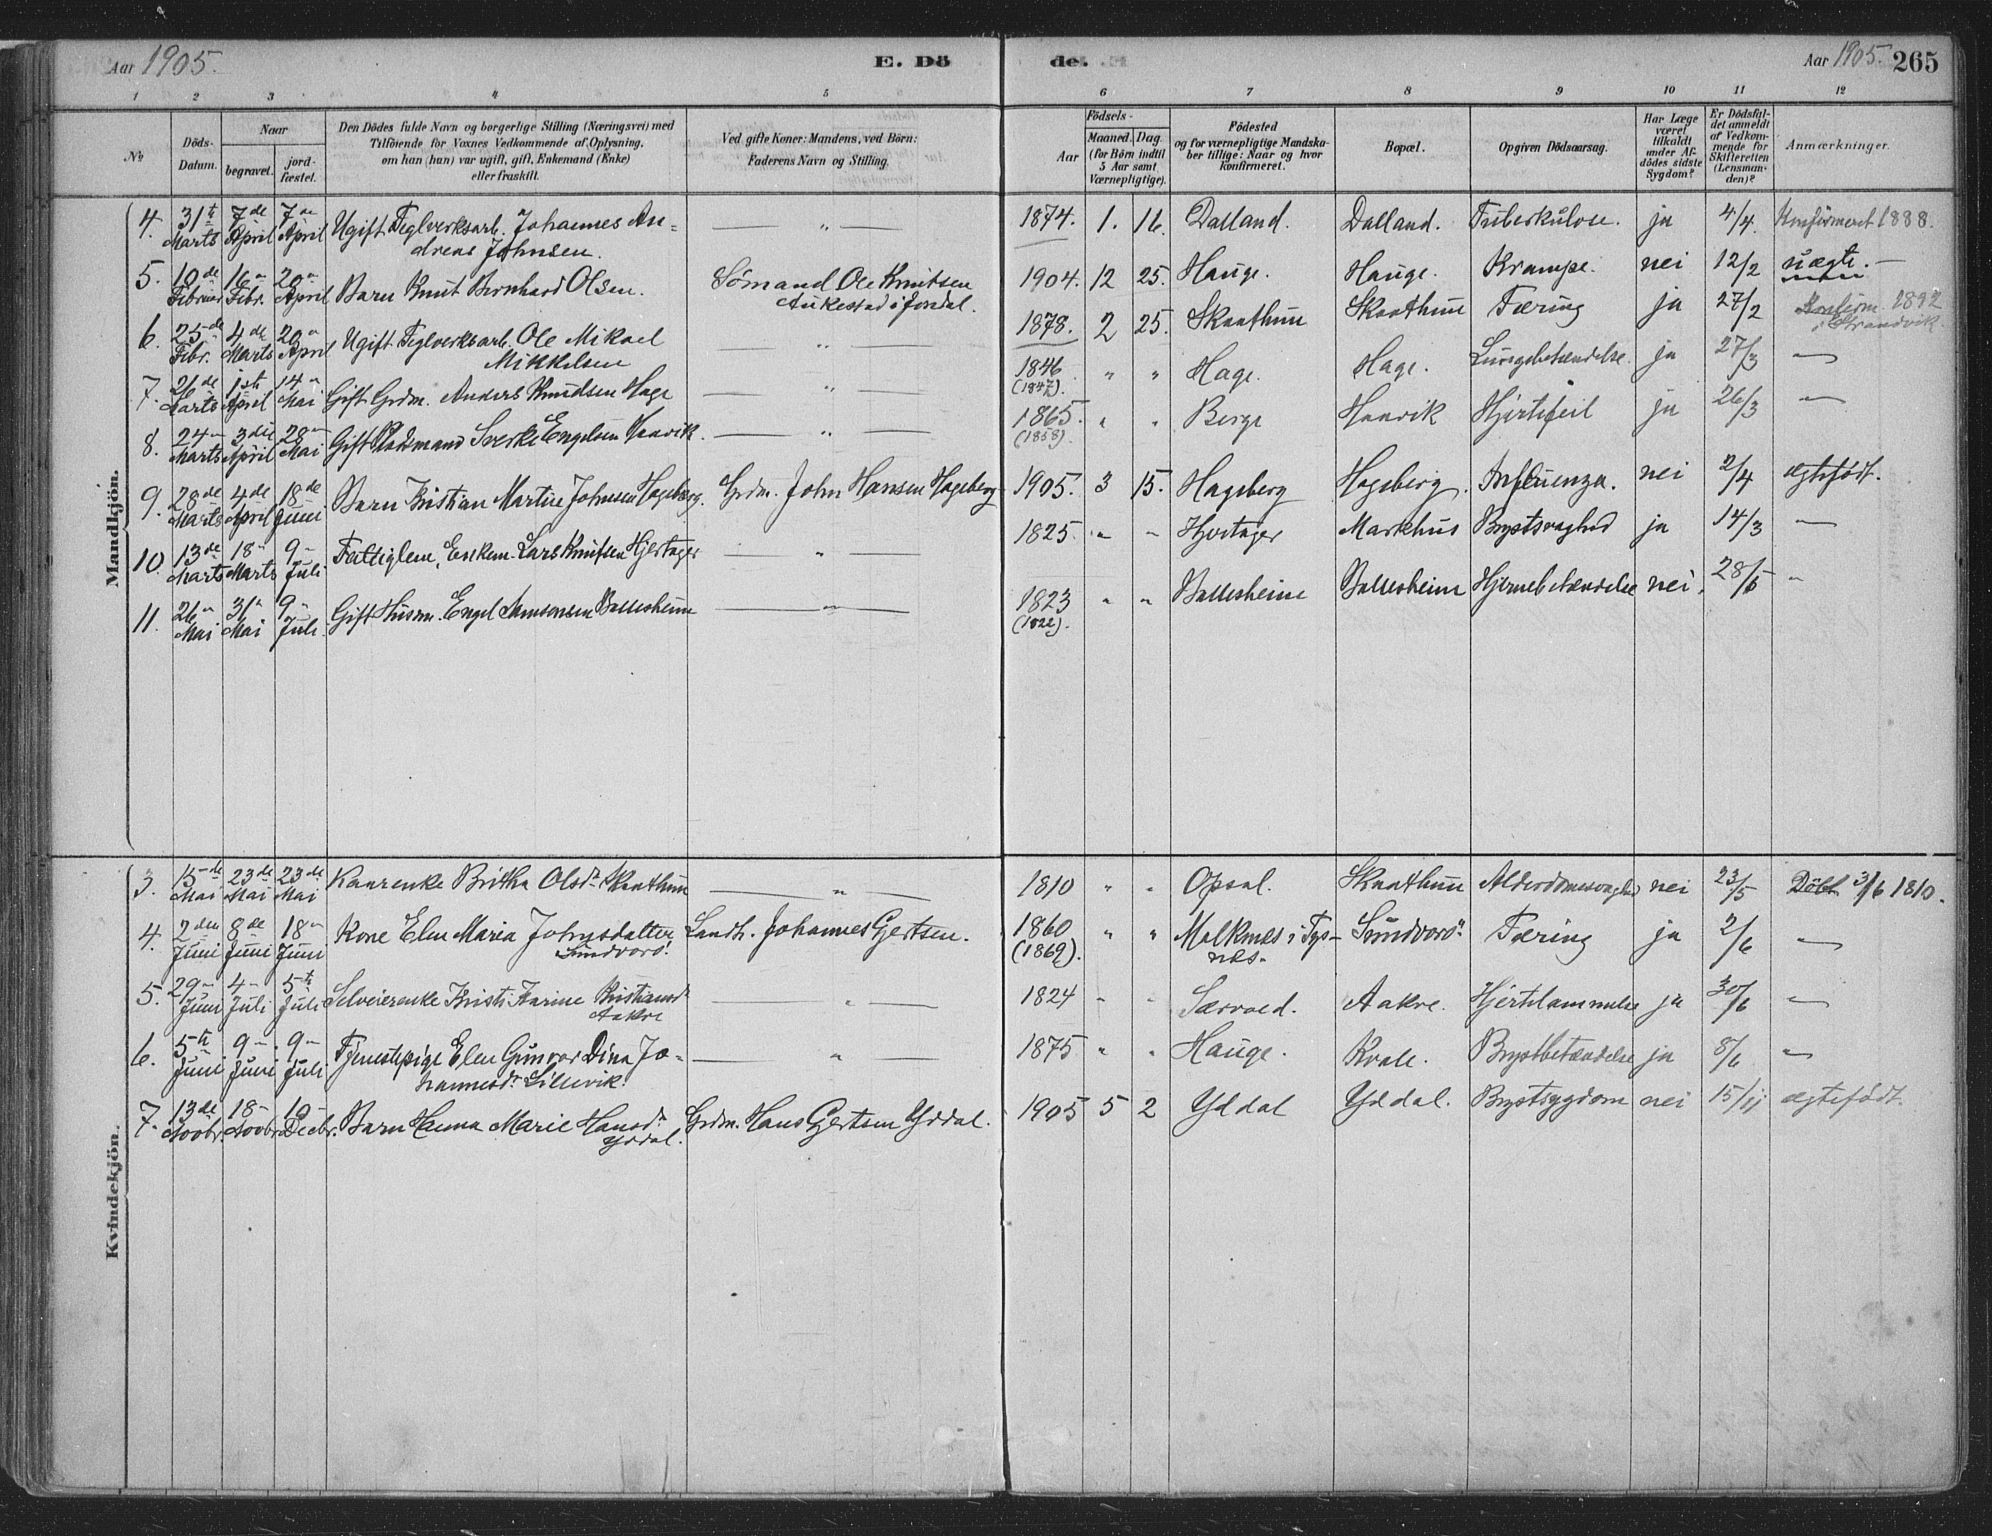 Aar 1905. E. Dö de. Aar 1905. 265
1 2 3 4 5 6 7 8 9 10 11 12
No Döds-Datum. Naar begravet. jordfæstet. Den Dödes fulde Navn og borgerlige Stilling (Næringsvei) med Tilföiende for Voxnes Vedkommende af Oplysning, om han (hun) var ugift, gift, Enkemand (Enke) eller fraskilt. Ved gifte Koner: Mandens, ved Börn: Faderens Navn og Stilling. Födsels- Aar Maaned. Dag. (for Börn indtil 5 Aar samt Værnepligtige). Födested og for værnepligtige Mandskaber tillige: Naar og hvor konfirmeret. Bopæl. Opgiven Dödsaarsag. Har Læge været tilkaldt under Afdödes sidste Sygdom? Er Dödsfaldet anmeldt af Vedkommende for Skifteretten (Lensmanden)? Anmærkninger.
Mandkjön.
4. 31te Marts 7de April 7de April Ugift Teglverksarb. Johannes Andreas Johnsen. — " — 1874. 1. 16. Dalland. Dalland. Tuberkulose. ja 4/4. Konfirmeret 1888.
5. 10de Februar 16" Febr. 20" April Barn Knut Bernhard Olsen. Sømand Ole Knutsen Aukestad i Jondal. 1904. 12 25. Hauge. Hauge. Krampe. nei 12/2 uægte. —
6. 25de Febr. 4de Marts 20" April Ugift Teglverksarb. Ole Mikael Mikkelsen — " — 1878. 2 25. Skaathun Skaathun Tæring ja 27/2 Konfirm. 1892 i Strandvik
7. 21de Marts 1ste April 14" Mai Gift Grdm. Anders Knudsen Hage — " — 1846 (1847). " " Hage. Hage. Lungebetændelse ja 27/3 —
8. 24" Marts 3die April 28" Mai Gift Sverke Engelsen Haavik. — " — 1865. (1858). " " Berge Haavik Hjertefeil ja 26/3 —
9. 28de Marts 4de April 18de Juni Barn Kristian Martin Johnsen Hageberg. Grdm. John Hansen Hageberg 1905. 3 15. Hageberg Hageberg. Influenza. nei 2/4 ægtefødt.
10. 13de Marts 18" Marts 9" Juli Fattiglem, Enkem. Lars Knutsen Hjertager — " — 1825. " " Hjertager Markhus Brystsvaghed ja 14/3 —
11. 26" Mai 31" Mai 9" Juli. Gift Husm. Engel Samsonsen Ballesheim — " — 1823 (1822). " " Ballesheim Ballesheim Hjernebetændelse nei. 28/5 "
Kvindekjön.
3. 15de Mai 23de Mai 23de Mai Kaarenke Britha Olsdr Skaathun — " — 1810 " " Opsal. Skaathun Alderdomssvaghed nei 23/5 Døbt 3/6 1810.
4. 2den Juni 8de Juni 18" Juni Kone Elen Maria Johnsdatter Sundvoro. Landh. Johannes Gjertsen. 1860 (1869). " " Malknes i Tysnes. Sundvoro. Tæring ja 2/6 —
5. 29" Juni 4" Juli 5te Juli Selveierenke Kristi Karine Kristiansdr Aakre — " — 1824 " " Særvold. Aakre. Hjertelammelse ja 30/6 —
6. 5te Juni 9" Juni 9" Juli Tjenestepige Elen Gunvor Dina Johannesdr Lillevik. — " — 1875 " " Hauge. Kvale. Brystbetændelse ja 8/6 —
7. 13de Novbr. 18" Novbr. 10" Decbr. Barn Hanna Marie Hansdr Yddal. Grdm. Hans Gjertsen Yddal. 1905 5 2 Yddal Yddal. Brystsygdom nei 15/11 ægtefødt.